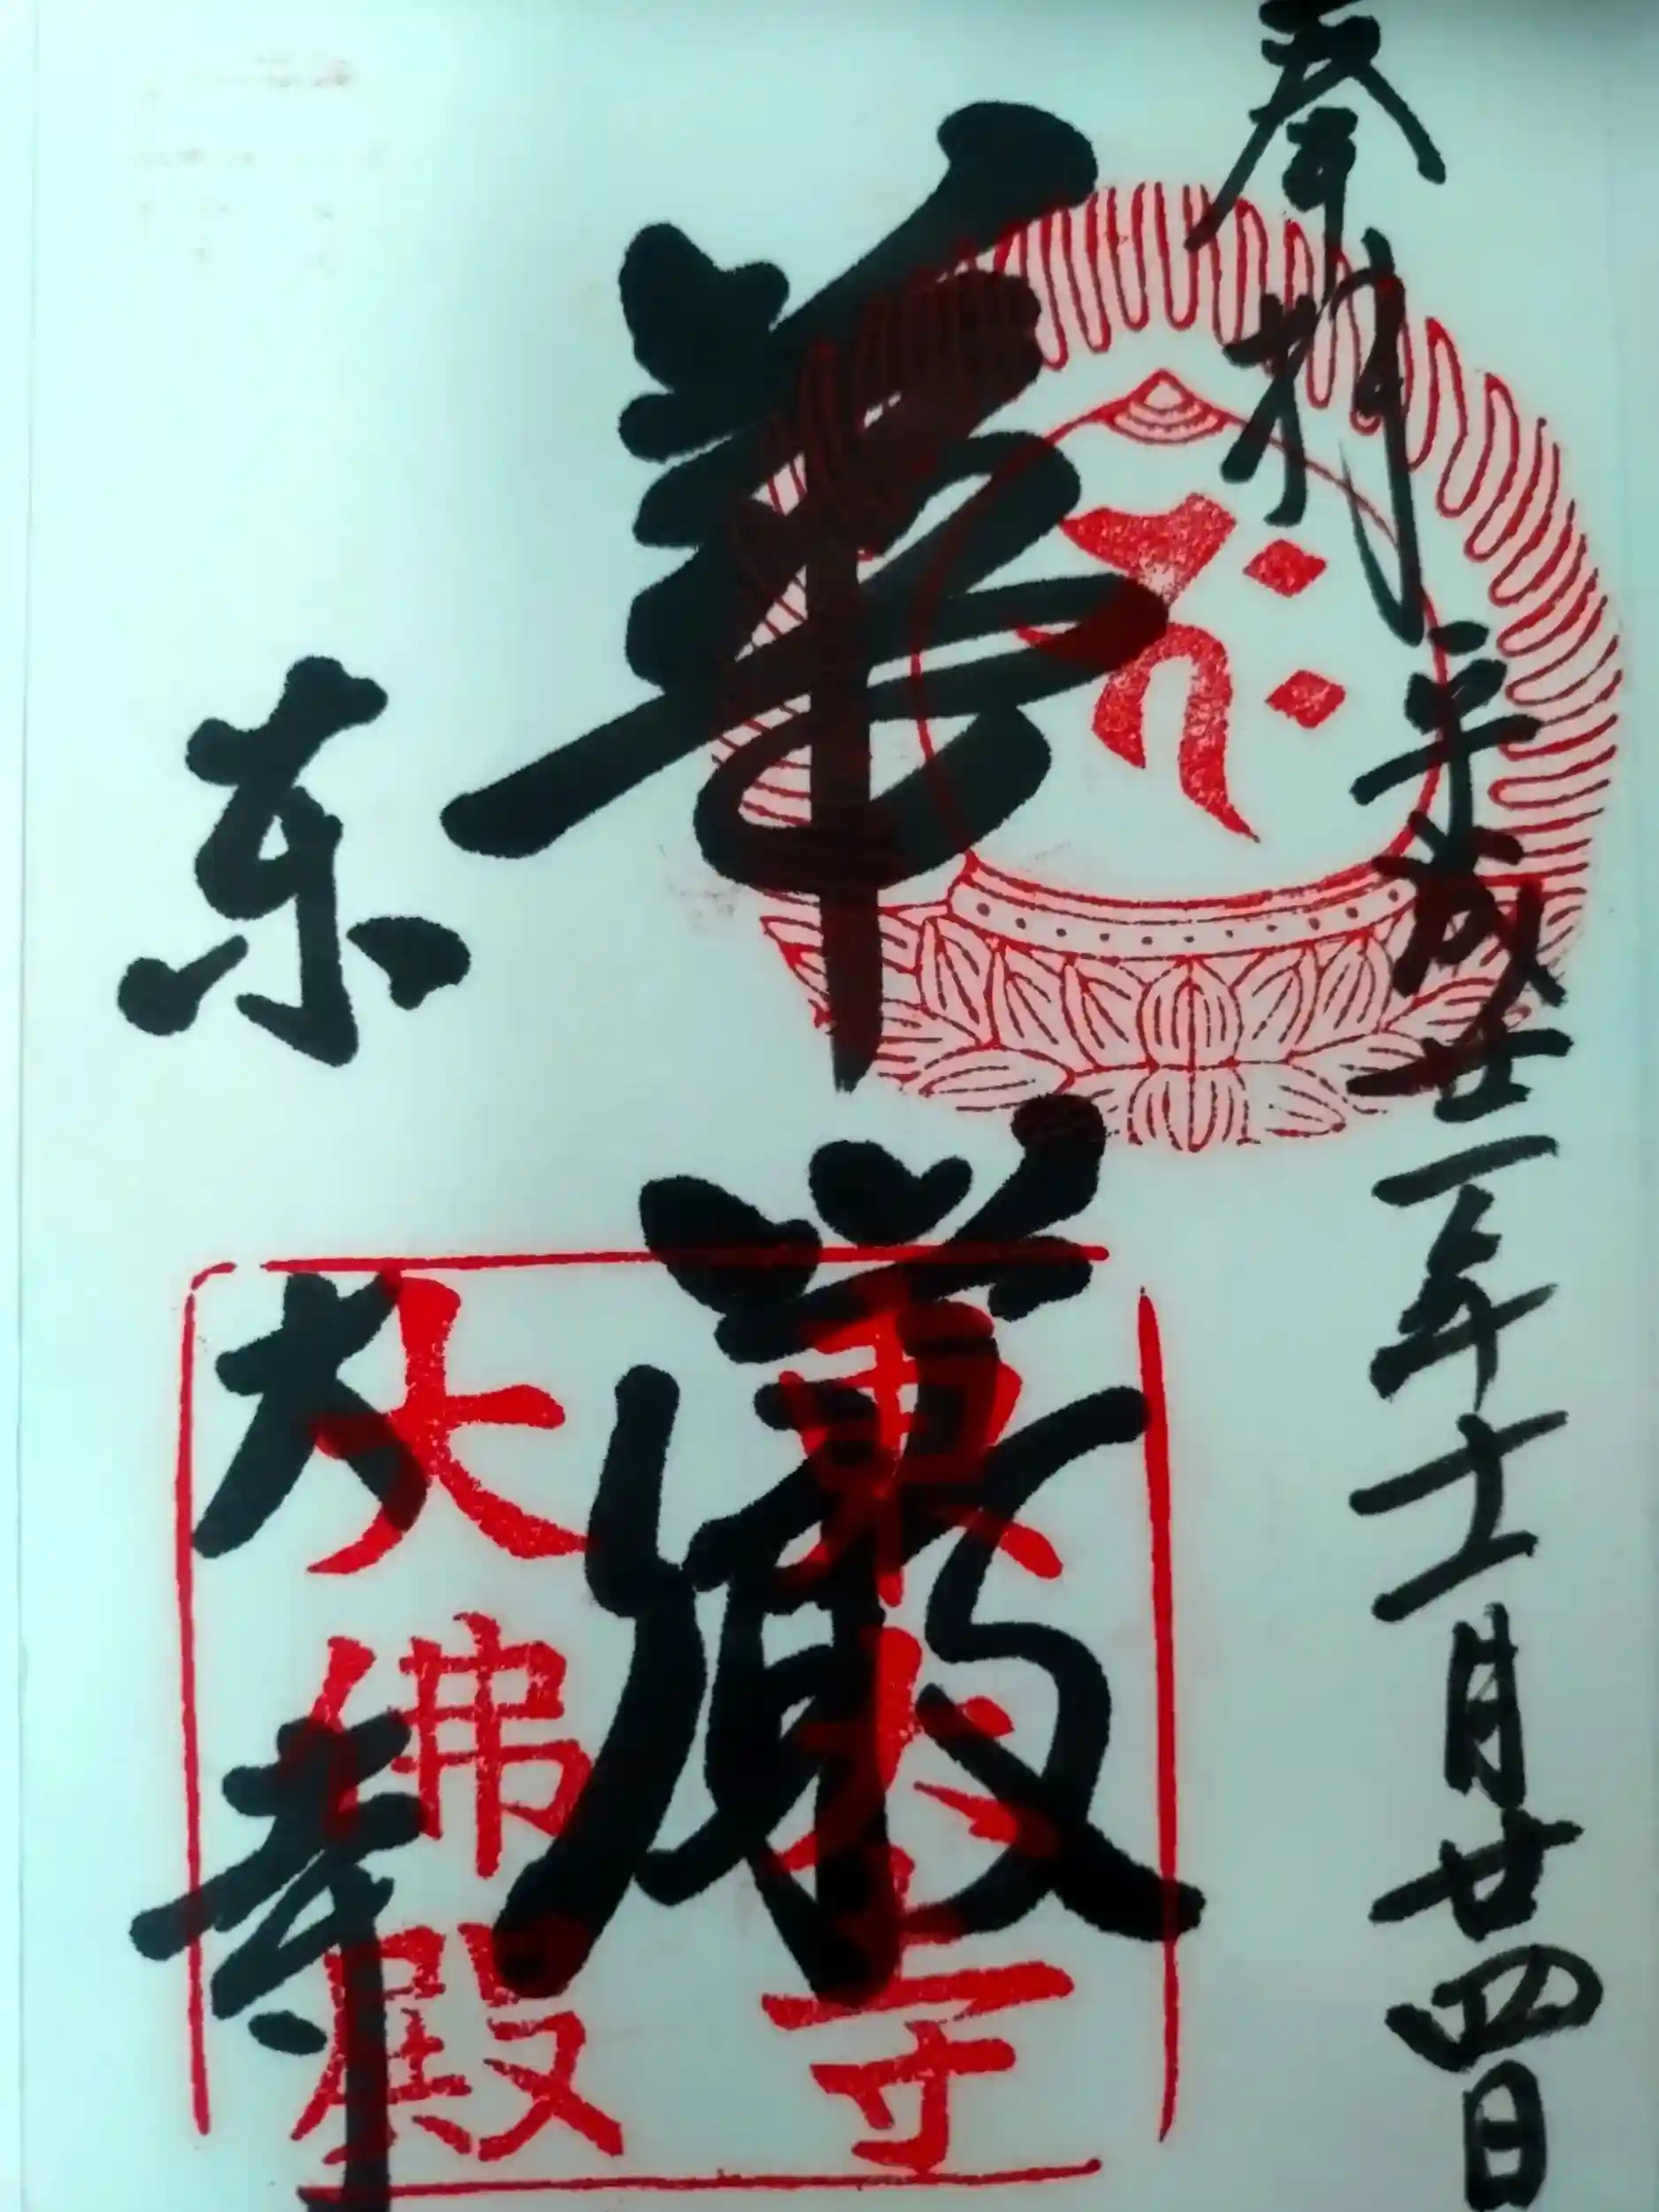 奉拝
平成廿一年十一月廿四日
華嚴
東大寺
東大寺
大佛殿